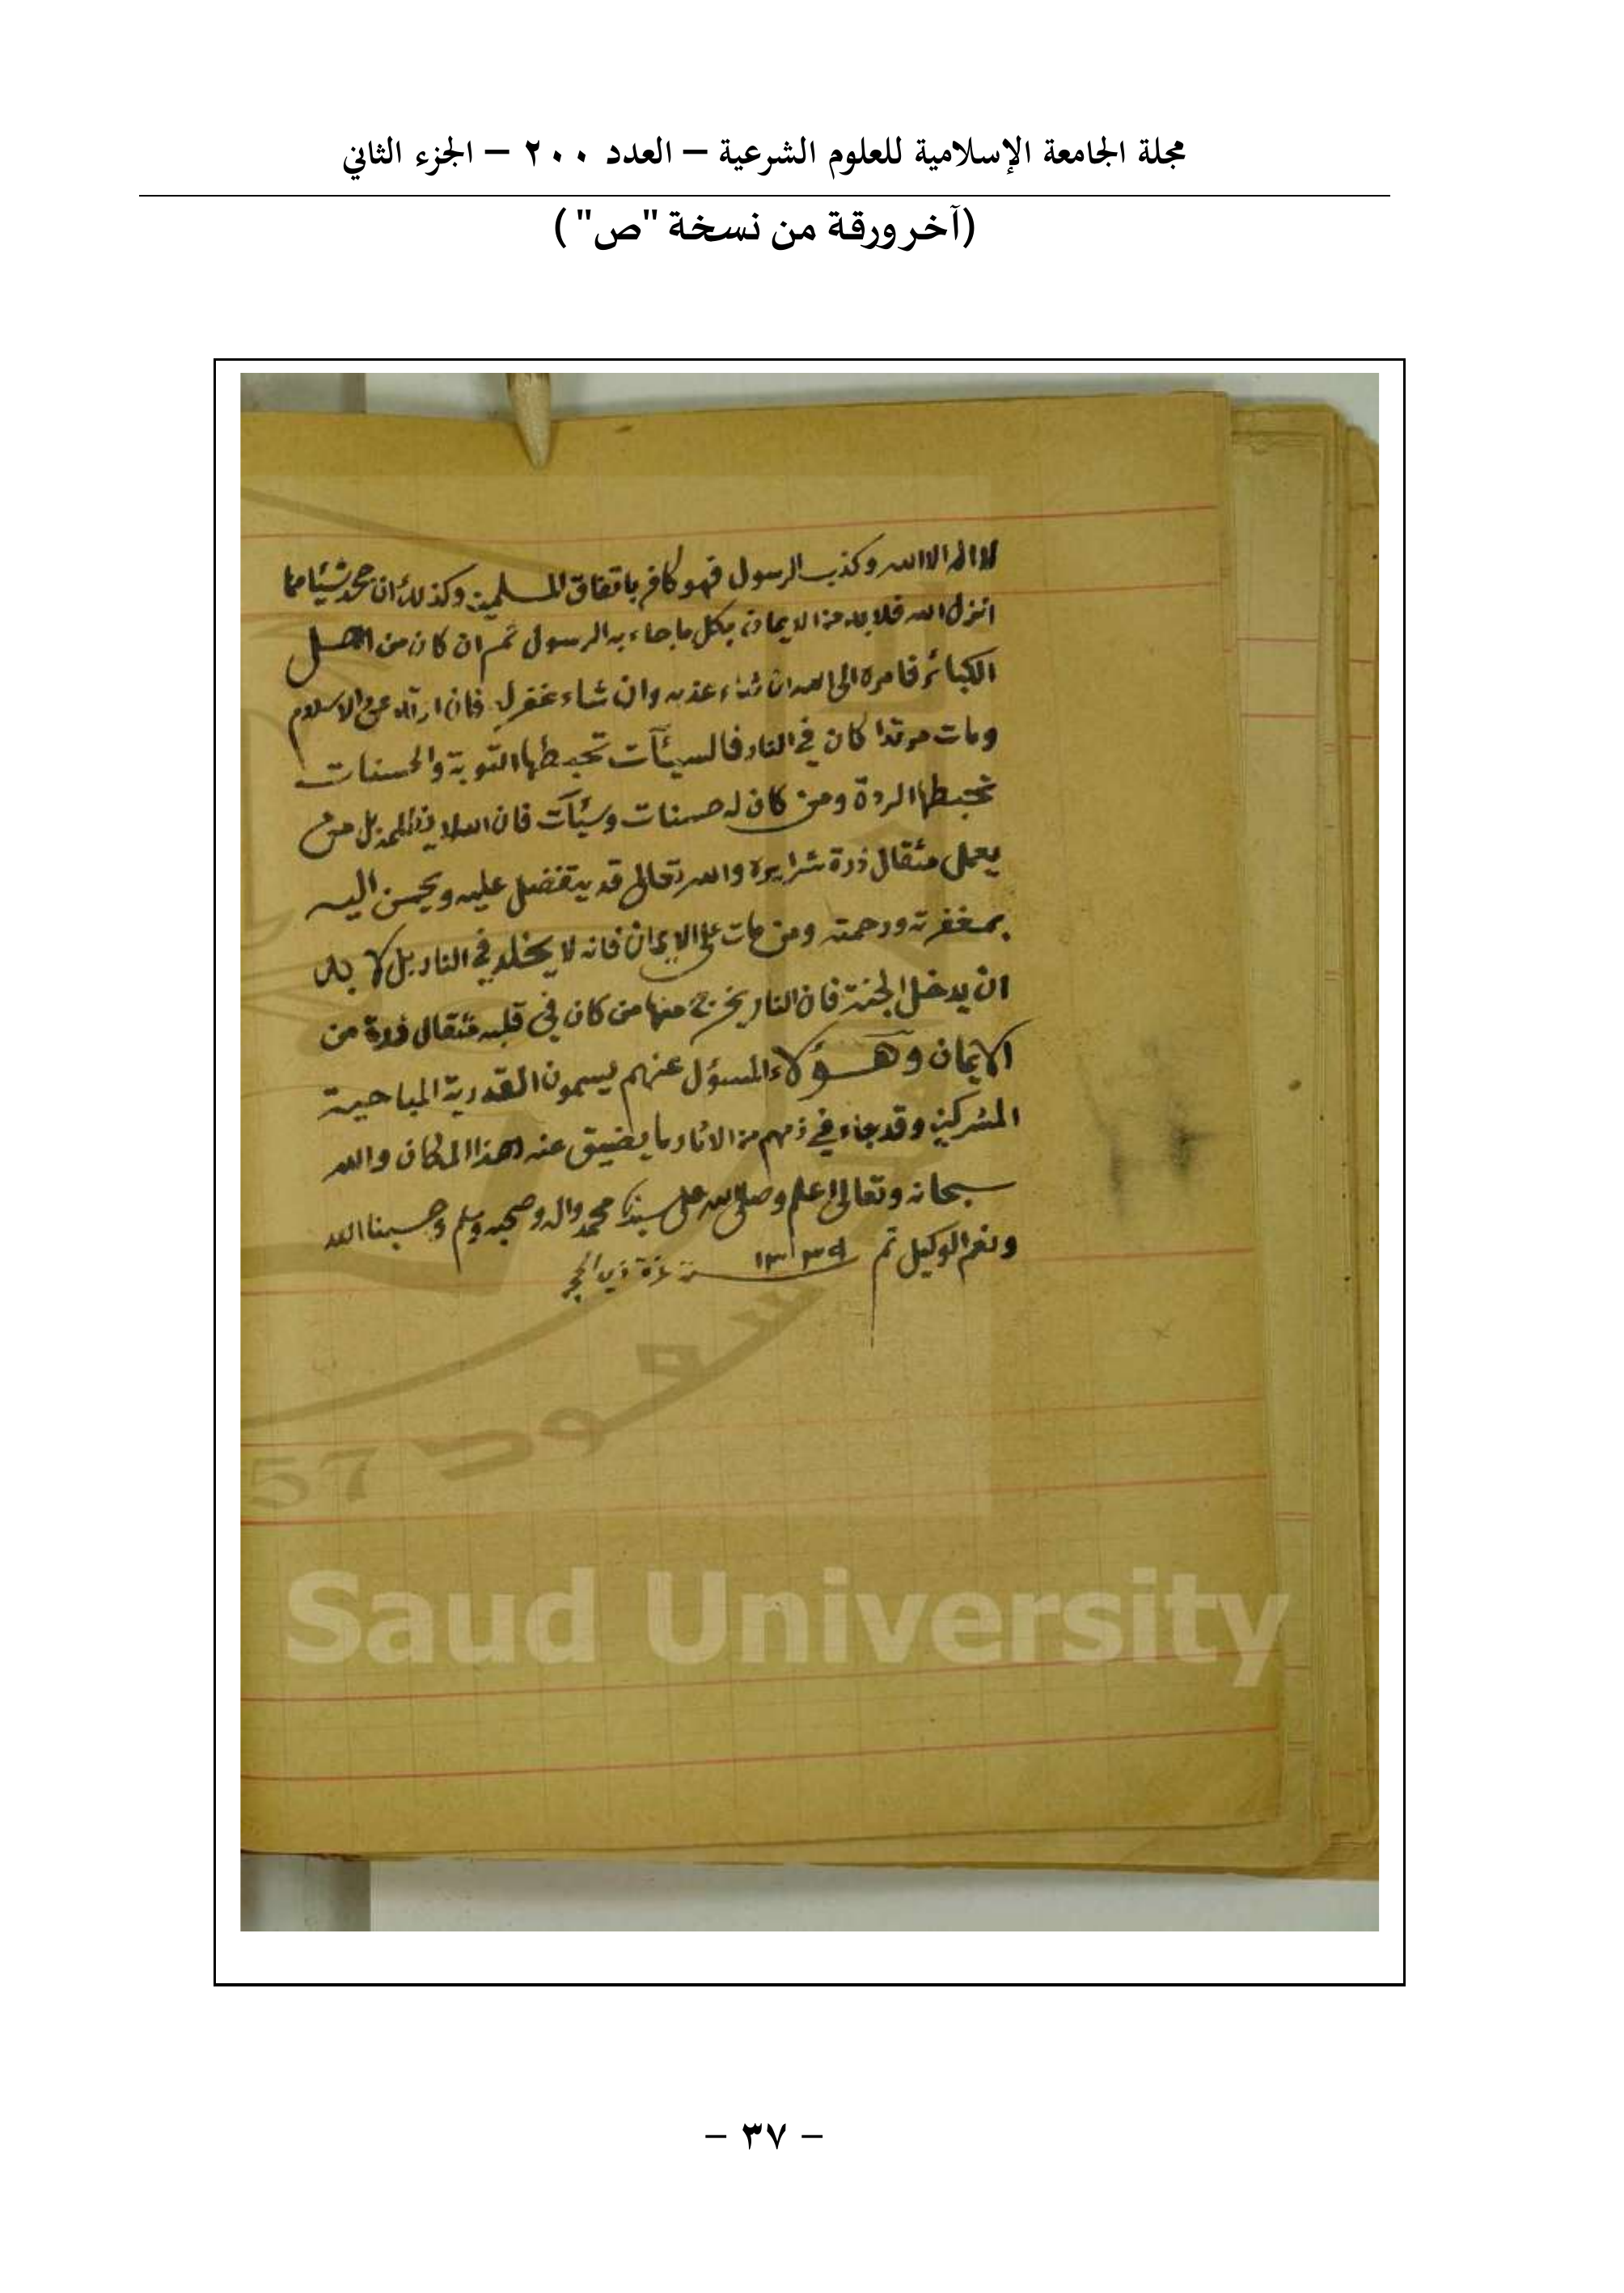 مجلة الجامعة الإسلامية للعلوم الشرعية – العدد ٢٠٠ – الجزء الثاني
(آخر ورقة من نسخة "ص")
لا اله الا الله وكذب الرسول فهو كافر باتفاق المسلمين وكذلك ان جحد شيئا مما
انزل الله فلا بد من الايمان بكل ما جاء به الرسول ثم ان كان من اهل
الكبائر فامره الى الله ان شاء عذبه وان شاء غفر له فان ارتد عن الاسلام
ومات مرتدا كان في النار فالسيئآت تحبطها التوبة والحسنات
تحبطها الردة ومن كان له حسنات وسيئآت فان الله لا يظلمه بل من
يعمل مثقال ذرة شرا يره والله تعالى قد يتفضل عليه ويحسن اليه
بمغفرته ورحمته ومن مات على الايمان فانه لا يخلد في النار بل لا بد
ان يدخل الجنة فان النار يخرج منها من كان في قلبه مثقال ذرة من
الايمان وهؤلاء المسؤل عنهم يسمون القدرية المباحية
المشركين وقد جاء في ذمهم من الاثار ما يضيق عنه هذا المكان والله
سبحانه وتعالى اعلم وصلى الله على سيدنا محمد واله وصحبه وسلم وحسبنا الله
ونعم الوكيل تم ١٣٣٩ سنة غرة ذي الحجر
سعود
57
Saud University
– ٣٧ –